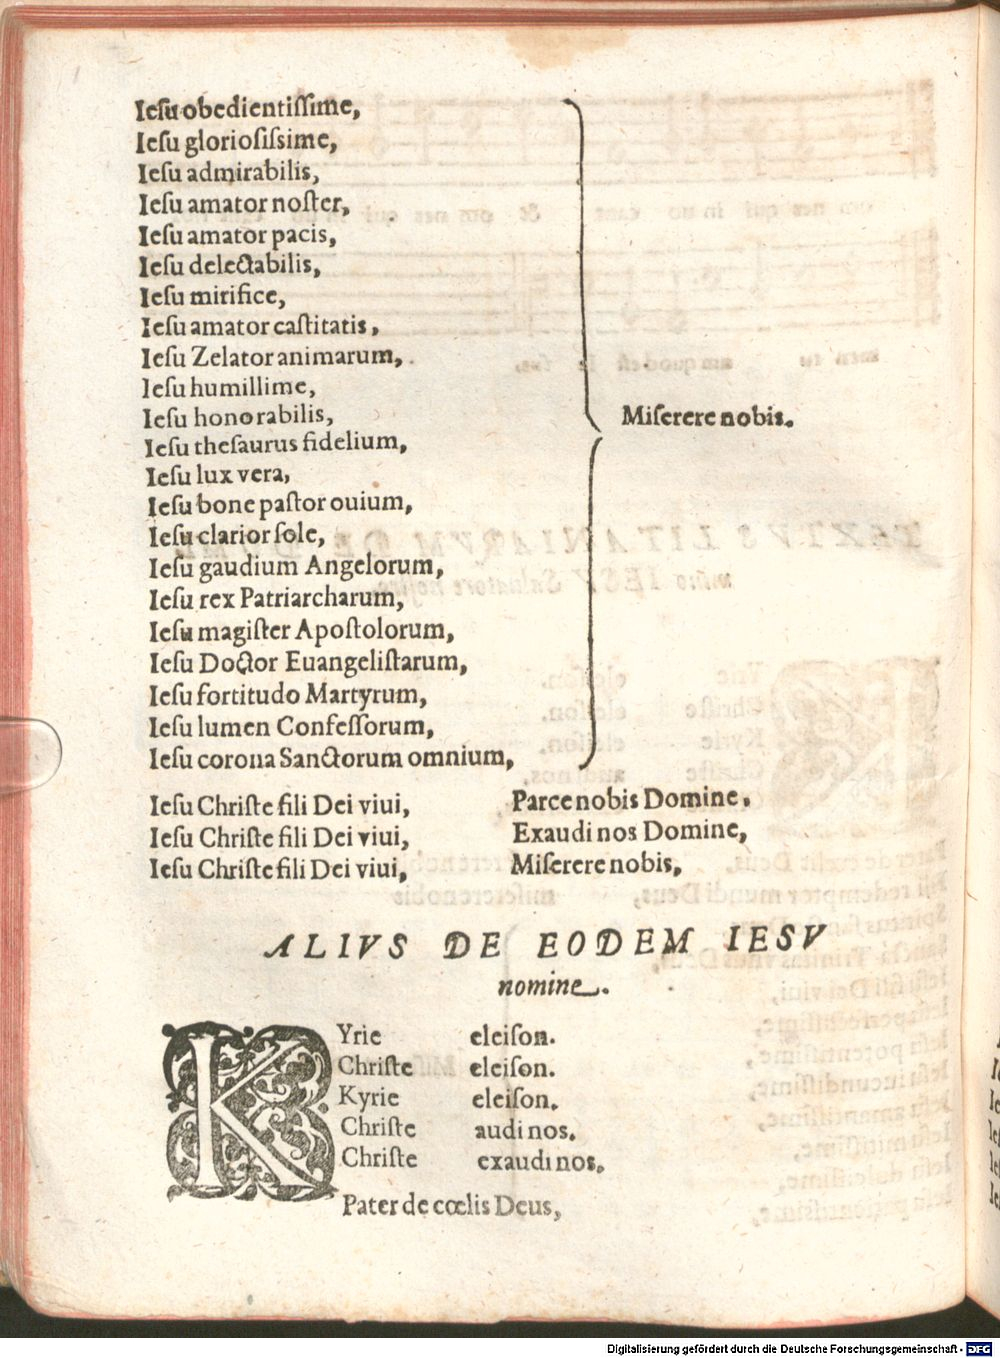 Iesu obedientissime,
Iesu gloriosissime,
Iesu admirabilis,
Iesu amator noster,
Iesu amator pacis,
Iesu delectabilis,
Iesu mirifice,
Iesu amator castitatis,
Iesu Zelator animarum,
Iesu humillime,
Iesu honorabilis,
Miserere nobis.
Iesu thesaurus fidelium,
Iesu lux vera,
Iesu bone pastor ouium,
Iesu clarior sole,
Iesu gaudium Angelorum,
Iesu rex Patriarcharum,
Iesu magister Apostolorum,
Iesu Doctor Euangelistarum,
Iesu fortitudo Martyrum,
Iesu lumen Confessorum,
Iesu corona Sanctorum omnium,
Iesu Christe fili Dei viui, Parce nobis Domine,
Iesu Christe fili Dei viui, Exaudi nos Domine,
Iesu Christe fili Dei viui, Miserere nobis,
ALIVS DE EODEM IESV
nomine.
KYrie eleison.
Christe eleison.
Kyrie eleison.
Christe audi nos.
Christe exaudi nos.
Pater de cœlis Deus,
Digitalisierung gefördert durch die Deutsche Forschungsgemeinschaft - DFG